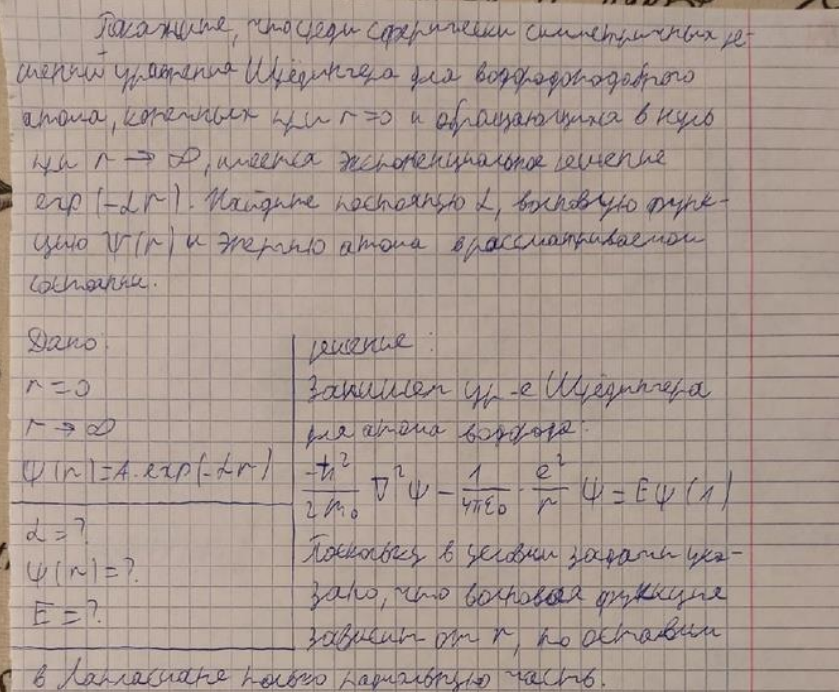 Покажите, что среди сферически симметричных ре-
шений уравнения Шрёдингера для водородоподобного
атома, конечных при r=0 и обращающихся в нуль
при r → ∞, имеется экспоненциальное решение
exp(-αr). Найдите постоянную α, волновую функ-
цию Ψ(r) и энергию атома в рассматриваемом
состоянии.
Дано:
r=0
r→∞
Ψ(r)=A·exp(-αr)
α=?
Ψ(r)=?
E=?
решение:
Запишем ур-е Шрёдингера
для атома водорода:
-ħ²/2m₀ ∇²Ψ - 1/4πε₀ · e²/r Ψ = EΨ (1)
Поскольку в условии задачи ука-
зано, что волновая функция
зависит от r, то оставим
в Лапласиане только радиальную часть.